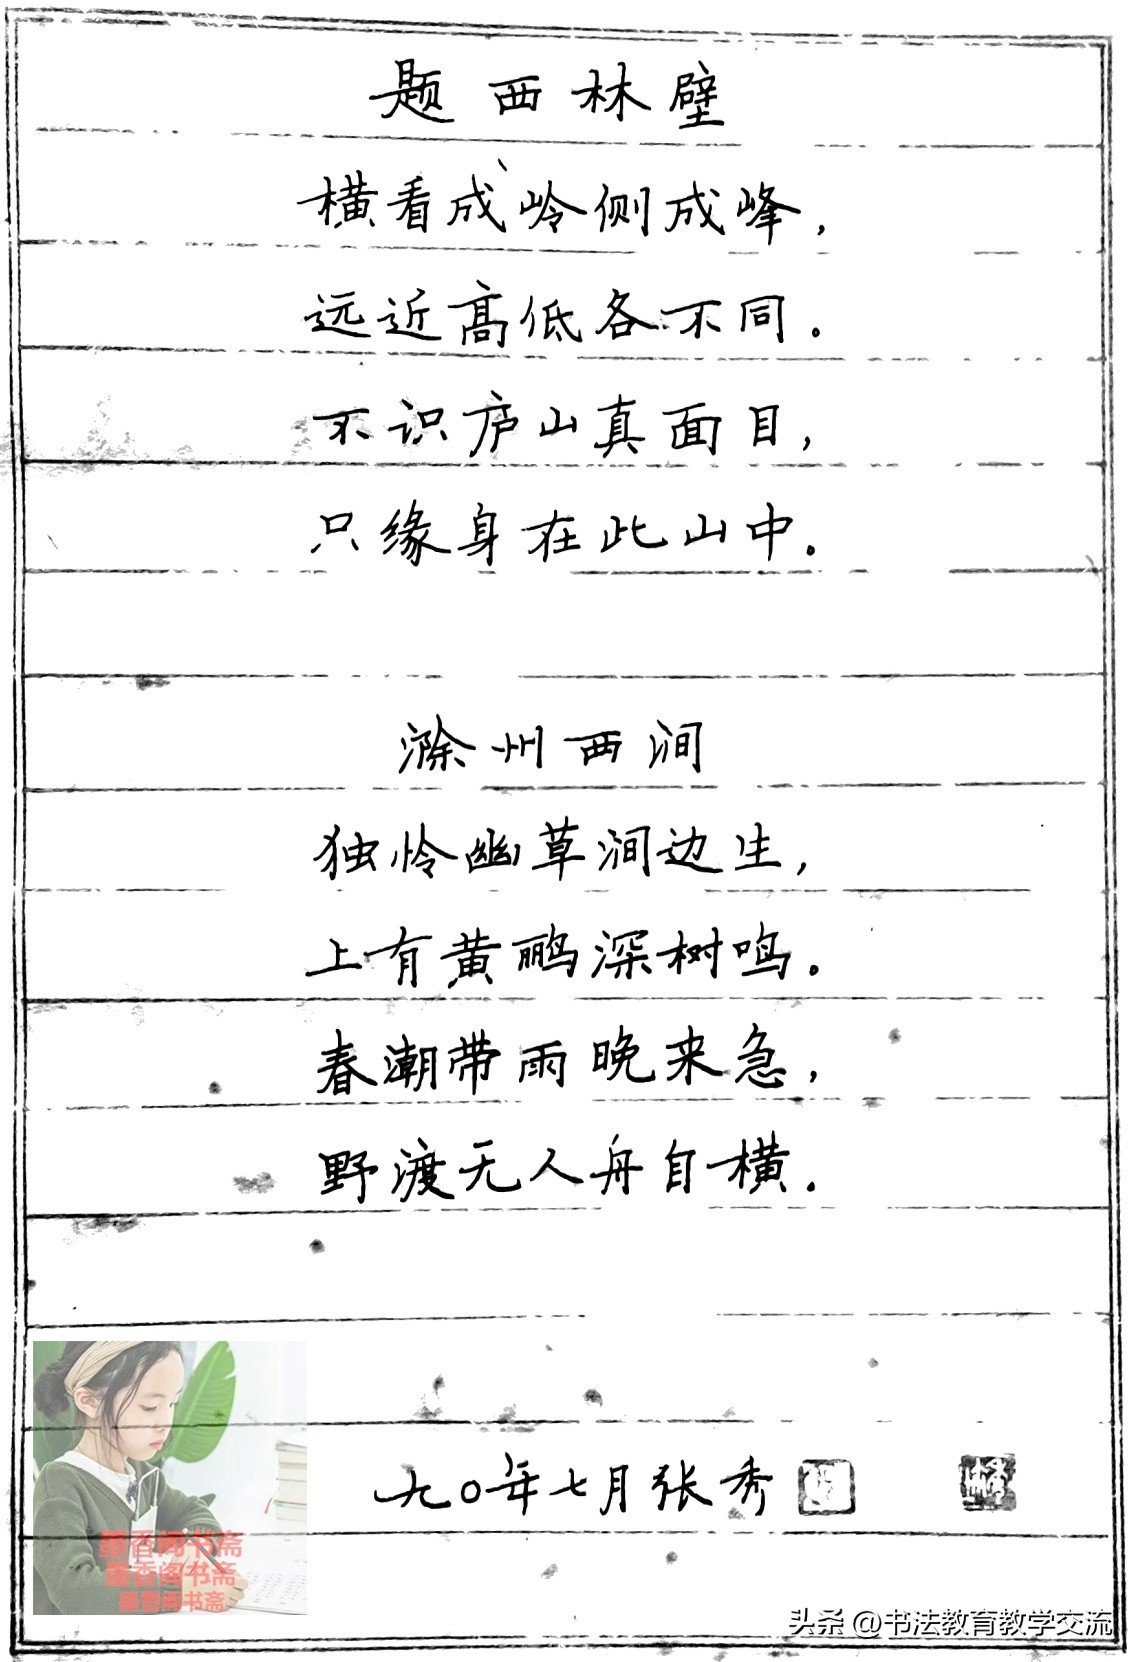 题西林壁
横看成岭侧成峰，
远近高低各不同．
不识庐山真面目，
只缘身在此山中．
滁州西涧
独怜幽草涧边生，
上有黄鹂深树鸣．
春潮带雨晚来急，
野渡无人舟自横．
九〇年七月张秀
墨香阁书斋
墨香阁书斋
墨香阁书斋
头条 @书法教育教学交流